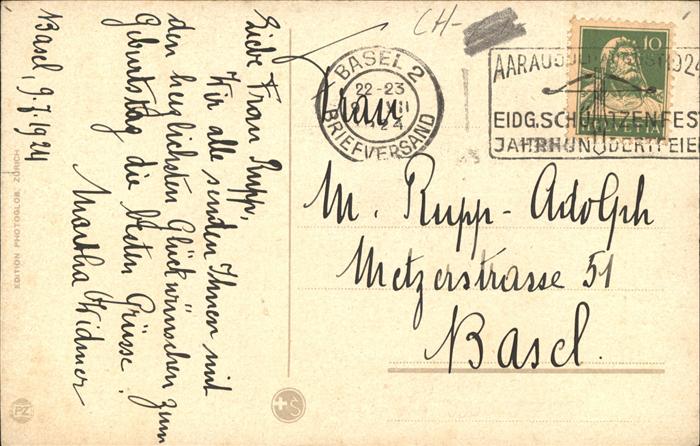 Basel, 9.7.1924
Liebe Frau Rupp,
Wir alle senden Ihnen mit
den herzlichsten Glückwünschen zum
Geburtstag die besten Grüsse!
Martha Widmer
EDITION PHOTOGLOB, ZÜRICH
PZ
CH-
BASEL 2
22-23
24
BRIEFVERSAND
AARAU
1924
EIDG. SCHÜTZENFEST
JAHRHUNDERTFEIER
10
HELVETIA
Frau
M. Rupp-Adolph
Metzerstrasse 51
Basel.